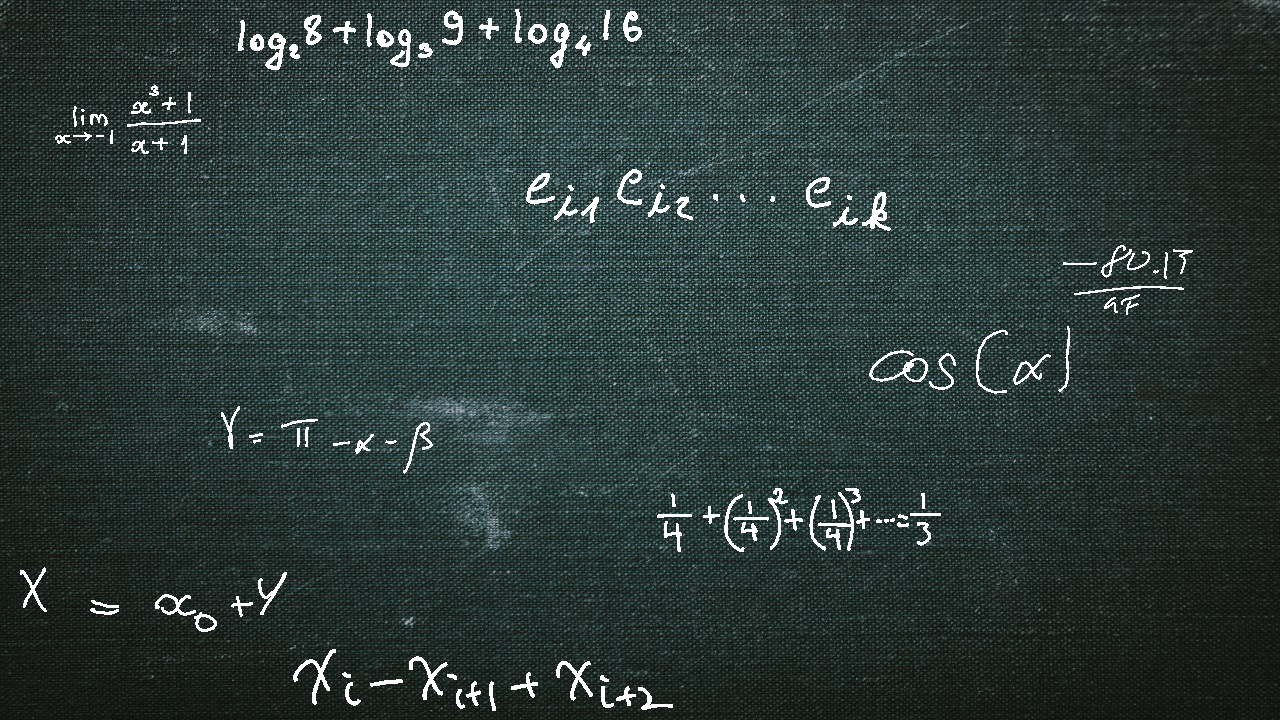 log₂ 8 + log₃ 9 + log₄ 16
lim x→-1 (x³ + 1)/(x + 1)
e_{i1} e_{i2} ... e_{ik}
cos(α)
γ = π - α - β
1/4 + (1/4)² + (1/4)³ + ... = 1/3
X = x₀ + Y
x_i - x_{i+1} + x_{i+2}